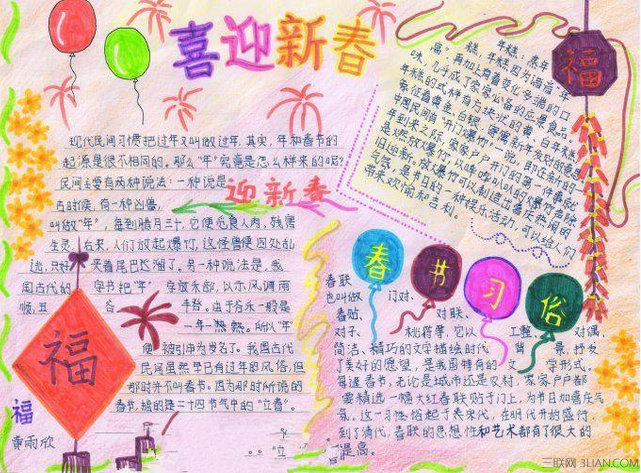 喜迎新春
福
年糕:蒸年
糕,年糕因为谐音"年
高",再加上有着变化多端的口
味,几乎成了家家必备的应景食品。
年糕的式样有方块状的黄、白年糕,
象征着黄金、白银,寄寓新年发财的意思。
中国民间有"开门爆竹"一说。即在新的一
年到来之际,家家户户开门的第一件事就
是燃放爆竹,以哔哔叭叭的爆竹声除
旧迎新。放爆竹可以制造出喜庆热闹的
气氛,是节日的一种娱乐活动,可以给人们
带来欢愉和吉利。
现代民间习惯把过年又叫做过年.其实,年和春节的
起源是很不相同的。那么"年"究竟是怎么样来的呢?
民间主要有两种说法:一种说是
古时候,有一种凶兽,
迎新春
叫做"年",每到腊月三十,它便
人肉,残害
生灵。
后来,人们放起爆竹,这怪兽便四处乱
逃,只好
夹着尾巴
溜了。另一种说法是,我
国古代的
字书把"年"
字放禾部,以示风调雨
顺,五
谷
丰登。由于谷禾一般是
一年一熟。所以"年"
便被引申为岁名了。我国古代
民间虽然早已有过年的风俗,但
那时并不叫春节。因为那时所说的
春节,
的是二十四节气中的"立春"。
春节习俗
春联
也叫做
门对、
春贴、
对联、
对子、
桃符等,它以
工整、
对偶、
简洁、精巧的文字描绘时代
背
景,抒发
了美好的愿望,是我国特有的
文
学形式。
每逢春节,无论是城市还是农村,家家户户都
要精选一幅大红春联贴于门上,为节日加喜乐气
氛。这一习俗起于
宋代,在明代开始盛行,
到了清代,春联的思想性和艺术都有了很大的
提高。
福
福
黄雨欣
三联网 3LIAN.COM